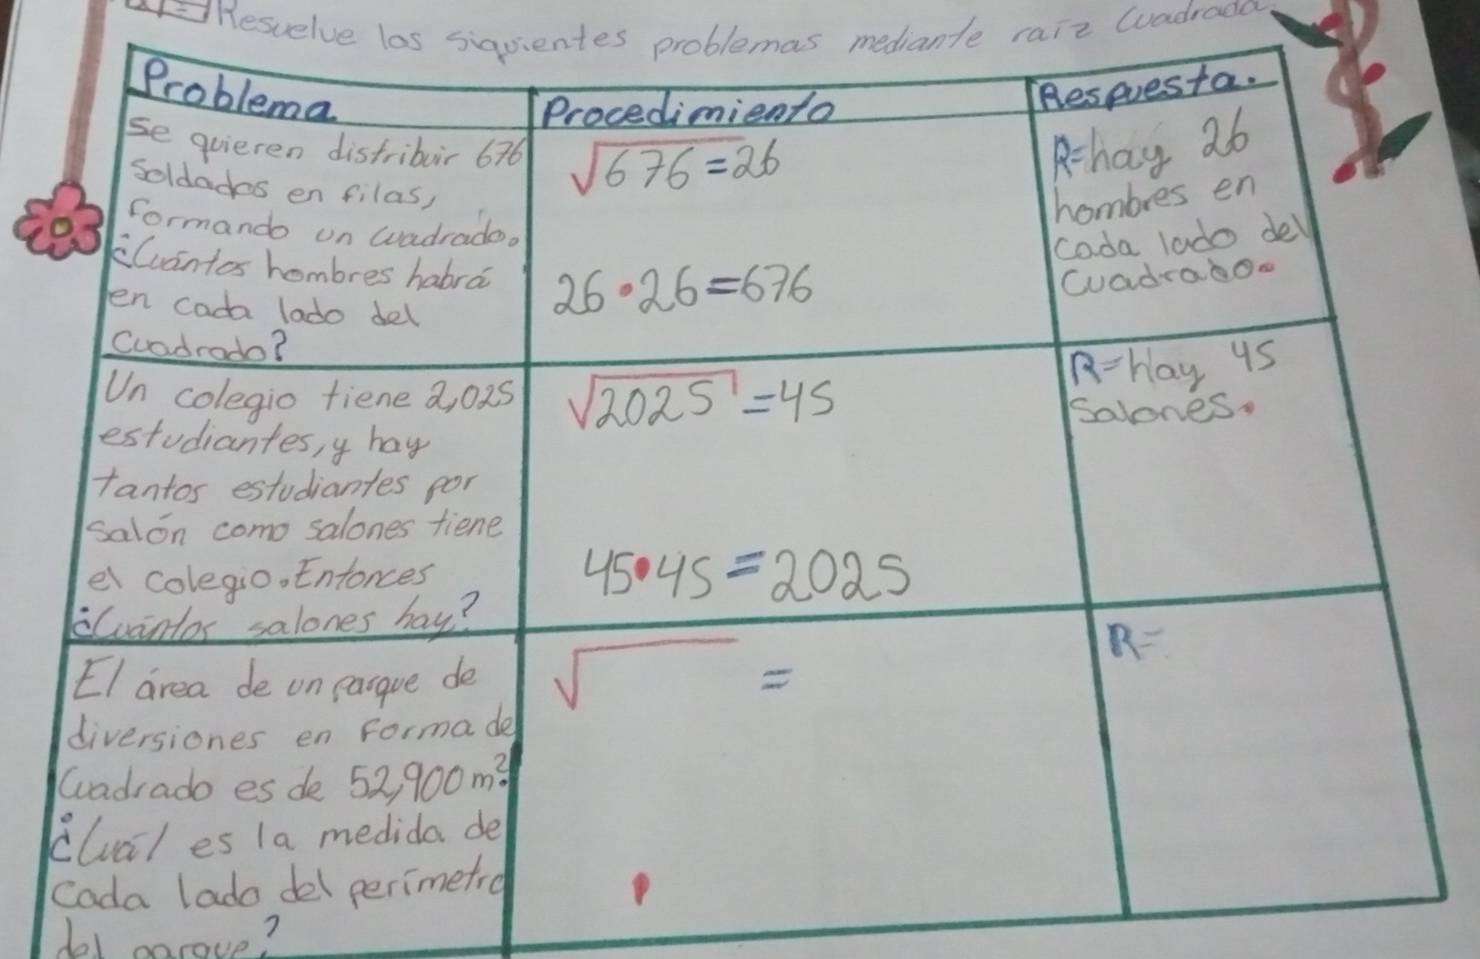 Resuelve los siguientes problemas mediante raíz Cuadrada
Problema. Procedimiento Respuesta.
Se quieren distribuir 676
Soldados en filas,
Formando un Cuadrado.
¿Cuántos hombres habrá
en cada lado del
Cuadrado?
√676=26
26•26=676
R=hay 26
hombres en
Cada lado del
Cuadrado.
Un colegio tiene 2,025
estudiantes, y hay
tantos estudiantes por
salón como salones tiene
el colegio. Entonces
¿Cuántos salones hay?
√2025=45
45•45=2025
R=Hay 45
Salones.
El área de un parque de
diversiones en Forma de
Cuadrado es de 52,900m².
¿Cuál es la medida de
cada lado del perímetro
del parque?
√ =
R=